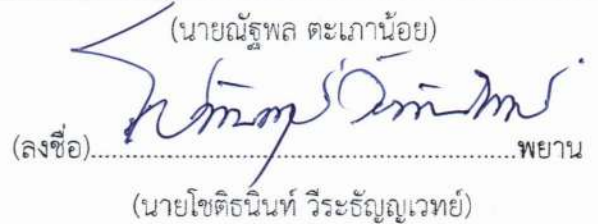 (นายณัฐพล ตะเภาน้อย)
(ลงชื่อ)..........................................................พยาน
(นายโชติธนินท์ วีระธัญญเวทย์)